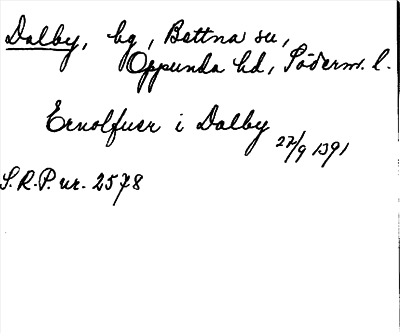 Dalby, by, Bettna sn,
Oppunda hd, Söderm. l.
Ernolfuer i Dalby 27/9 1391
S.R.P. nr. 2578